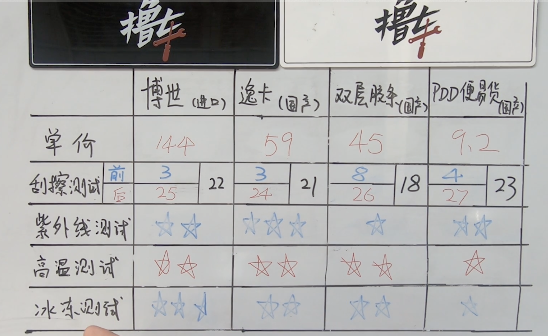 撸车 撸车
博世(进口) 逸卡(国产) 双层胶条(国产) PDD便易货(国产)
单价 144 59 45 9.2
刮擦测试 前 3 22 3 21 8 18 4 23
后 25 24 26 27
紫外线测试 ☆☆ ☆☆☆ ☆ ☆☆
高温测试 ☆☆ ☆☆ ☆☆ ☆
冰冻测试 ☆☆ ☆☆ ☆☆ ☆